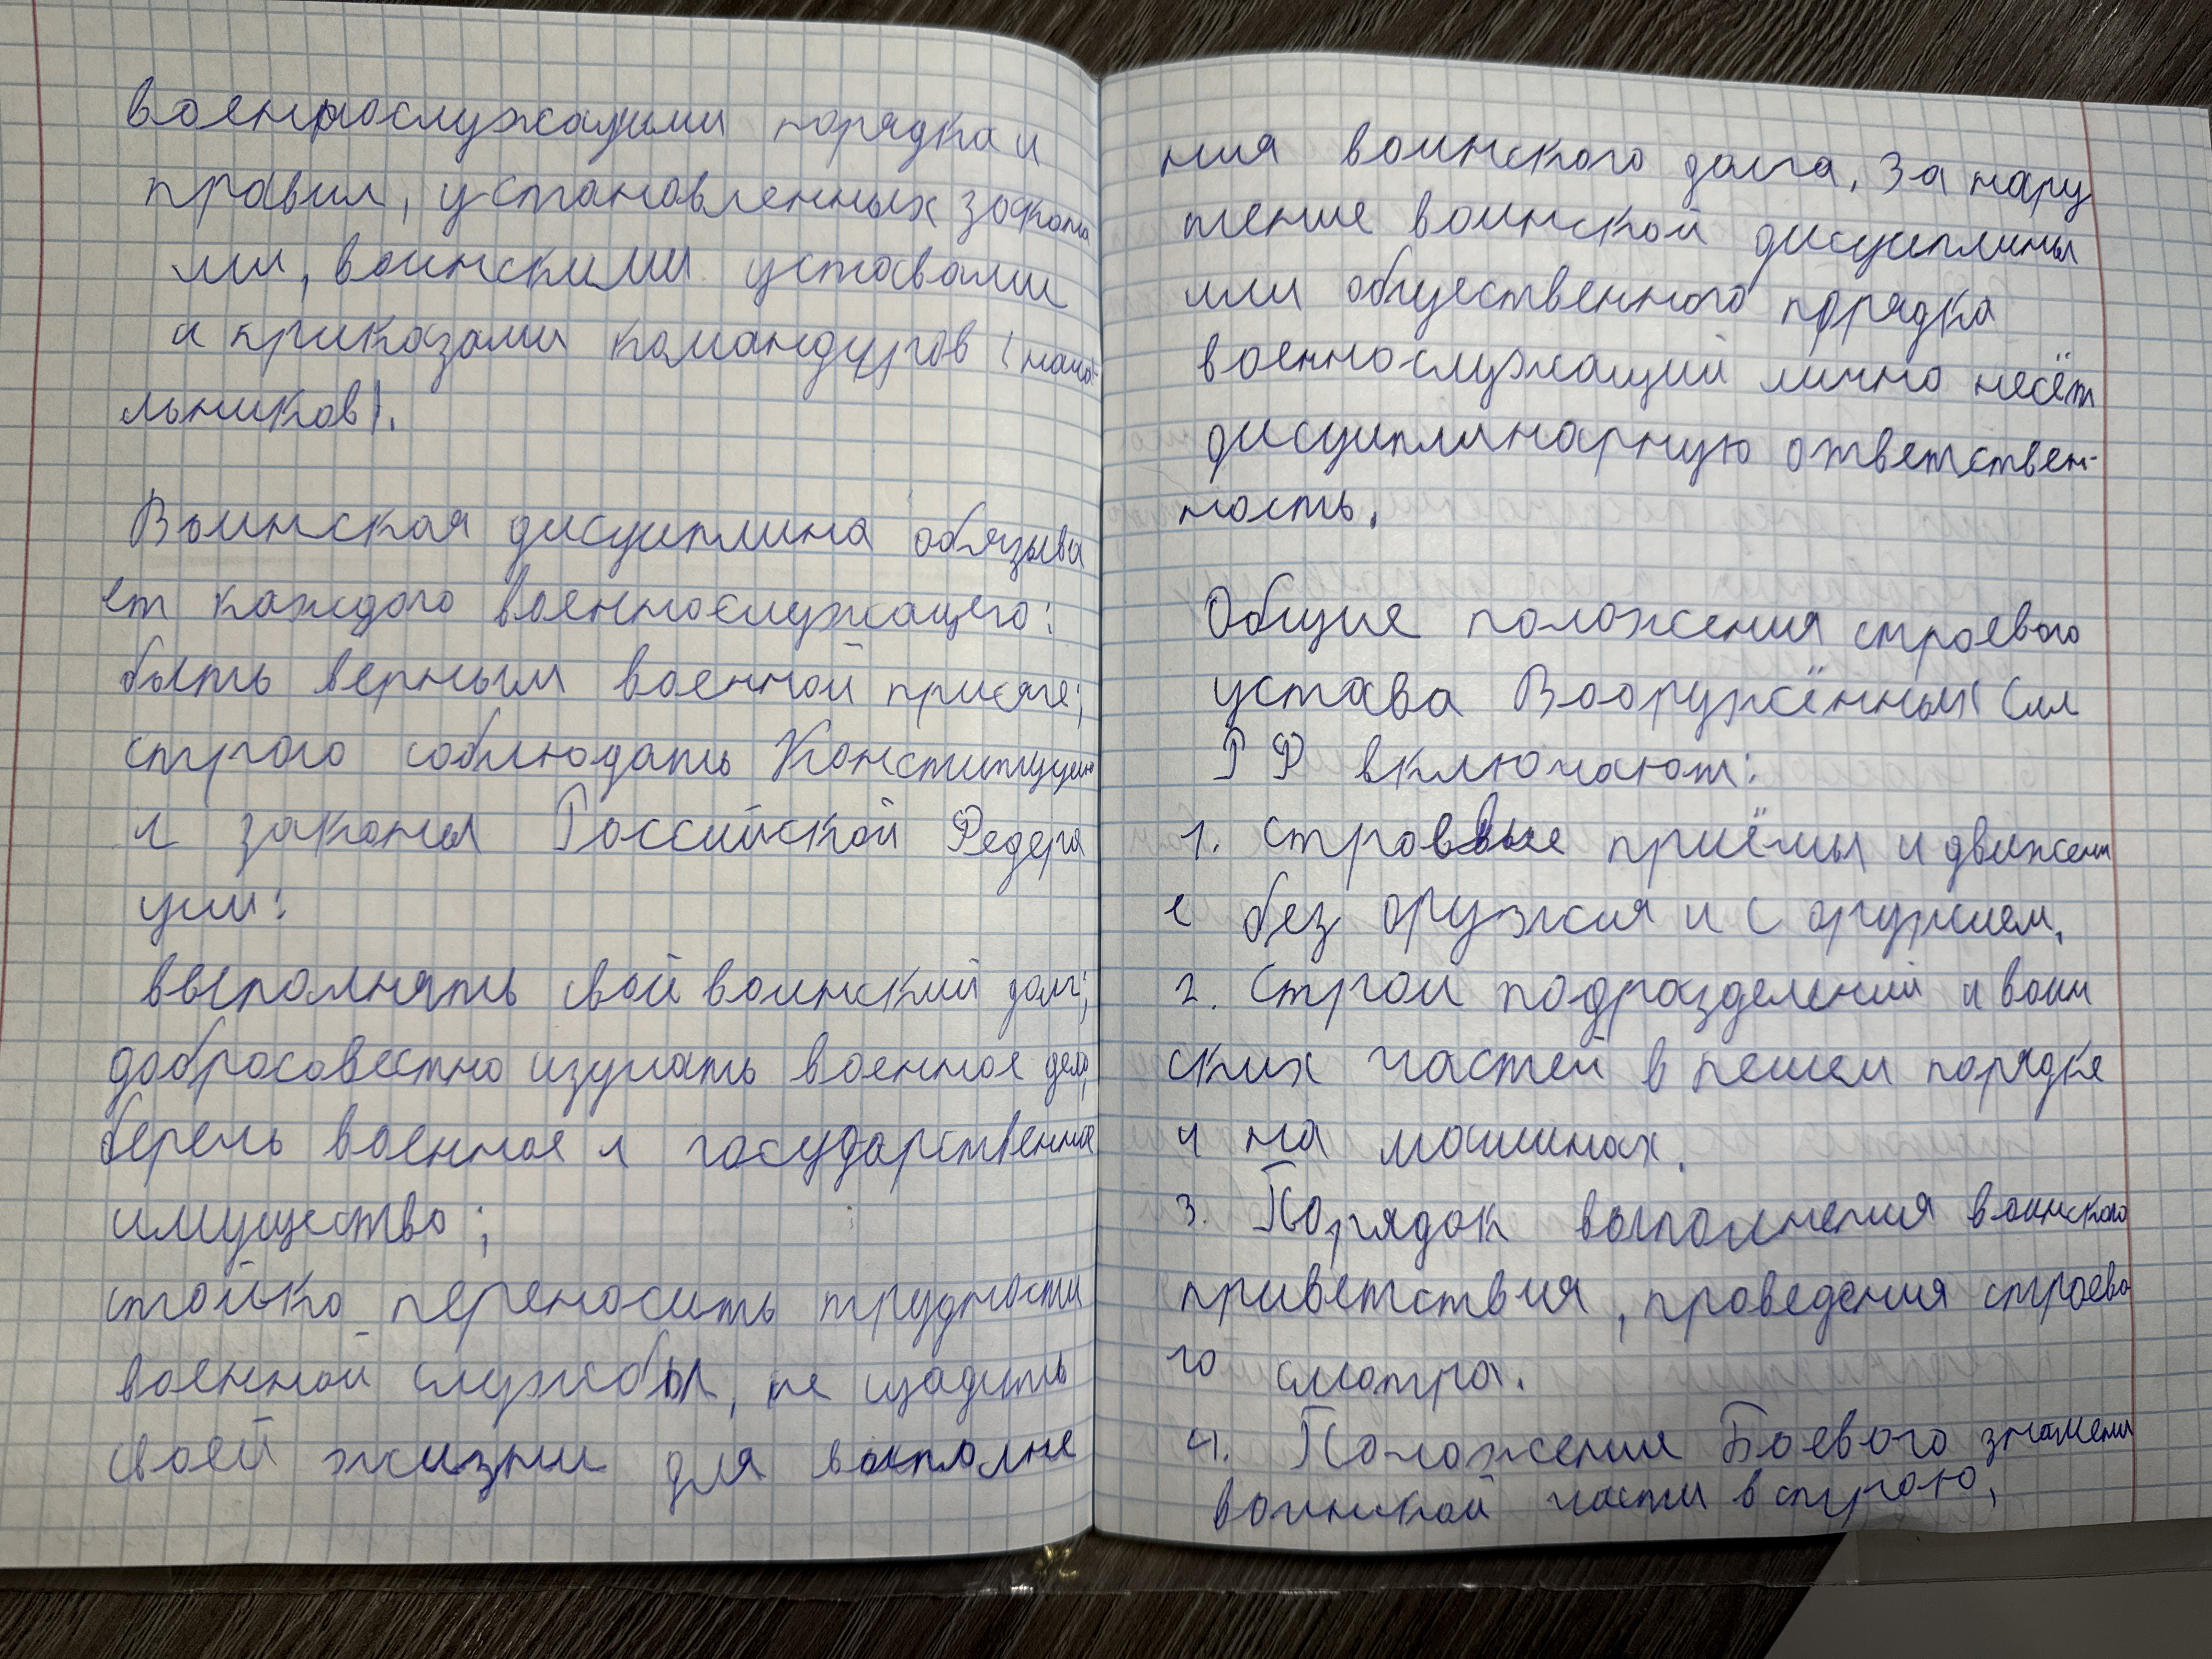 военнослужащими порядка и
правил, установленных закона
ми, воинскими уставами
и приказами командиров (нача-
льников).
Воинская дисциплина обязыва
ет каждого военнослужащего:
быть верным военной присяге;
строго соблюдать Конституцию
и законы Российской Федера
ции:
выполнять свой воинский долг;
добросовестно изучать военное дело,
беречь военное и государственное
имущество;
стойко переносить трудности
военной службы, не щадить
своей жизни для выполне
ния воинского долга. За нару
шение воинской дисциплины
или общественного порядка
военнослужащий лично несёт
дисциплинарную ответствен-
ность.
Общие положения строевого
устава Вооружённых Сил
РФ включают:
1. Строевые приёмы и движени
е без оружия и с оружием.
2. Строи подразделений и воин
ских частей в пешем порядке
и на машинах.
3. Порядок выполнения воинского
приветствия, проведения строево
го смотра.
4. Положение Боевого знамени
воинской части в строю,